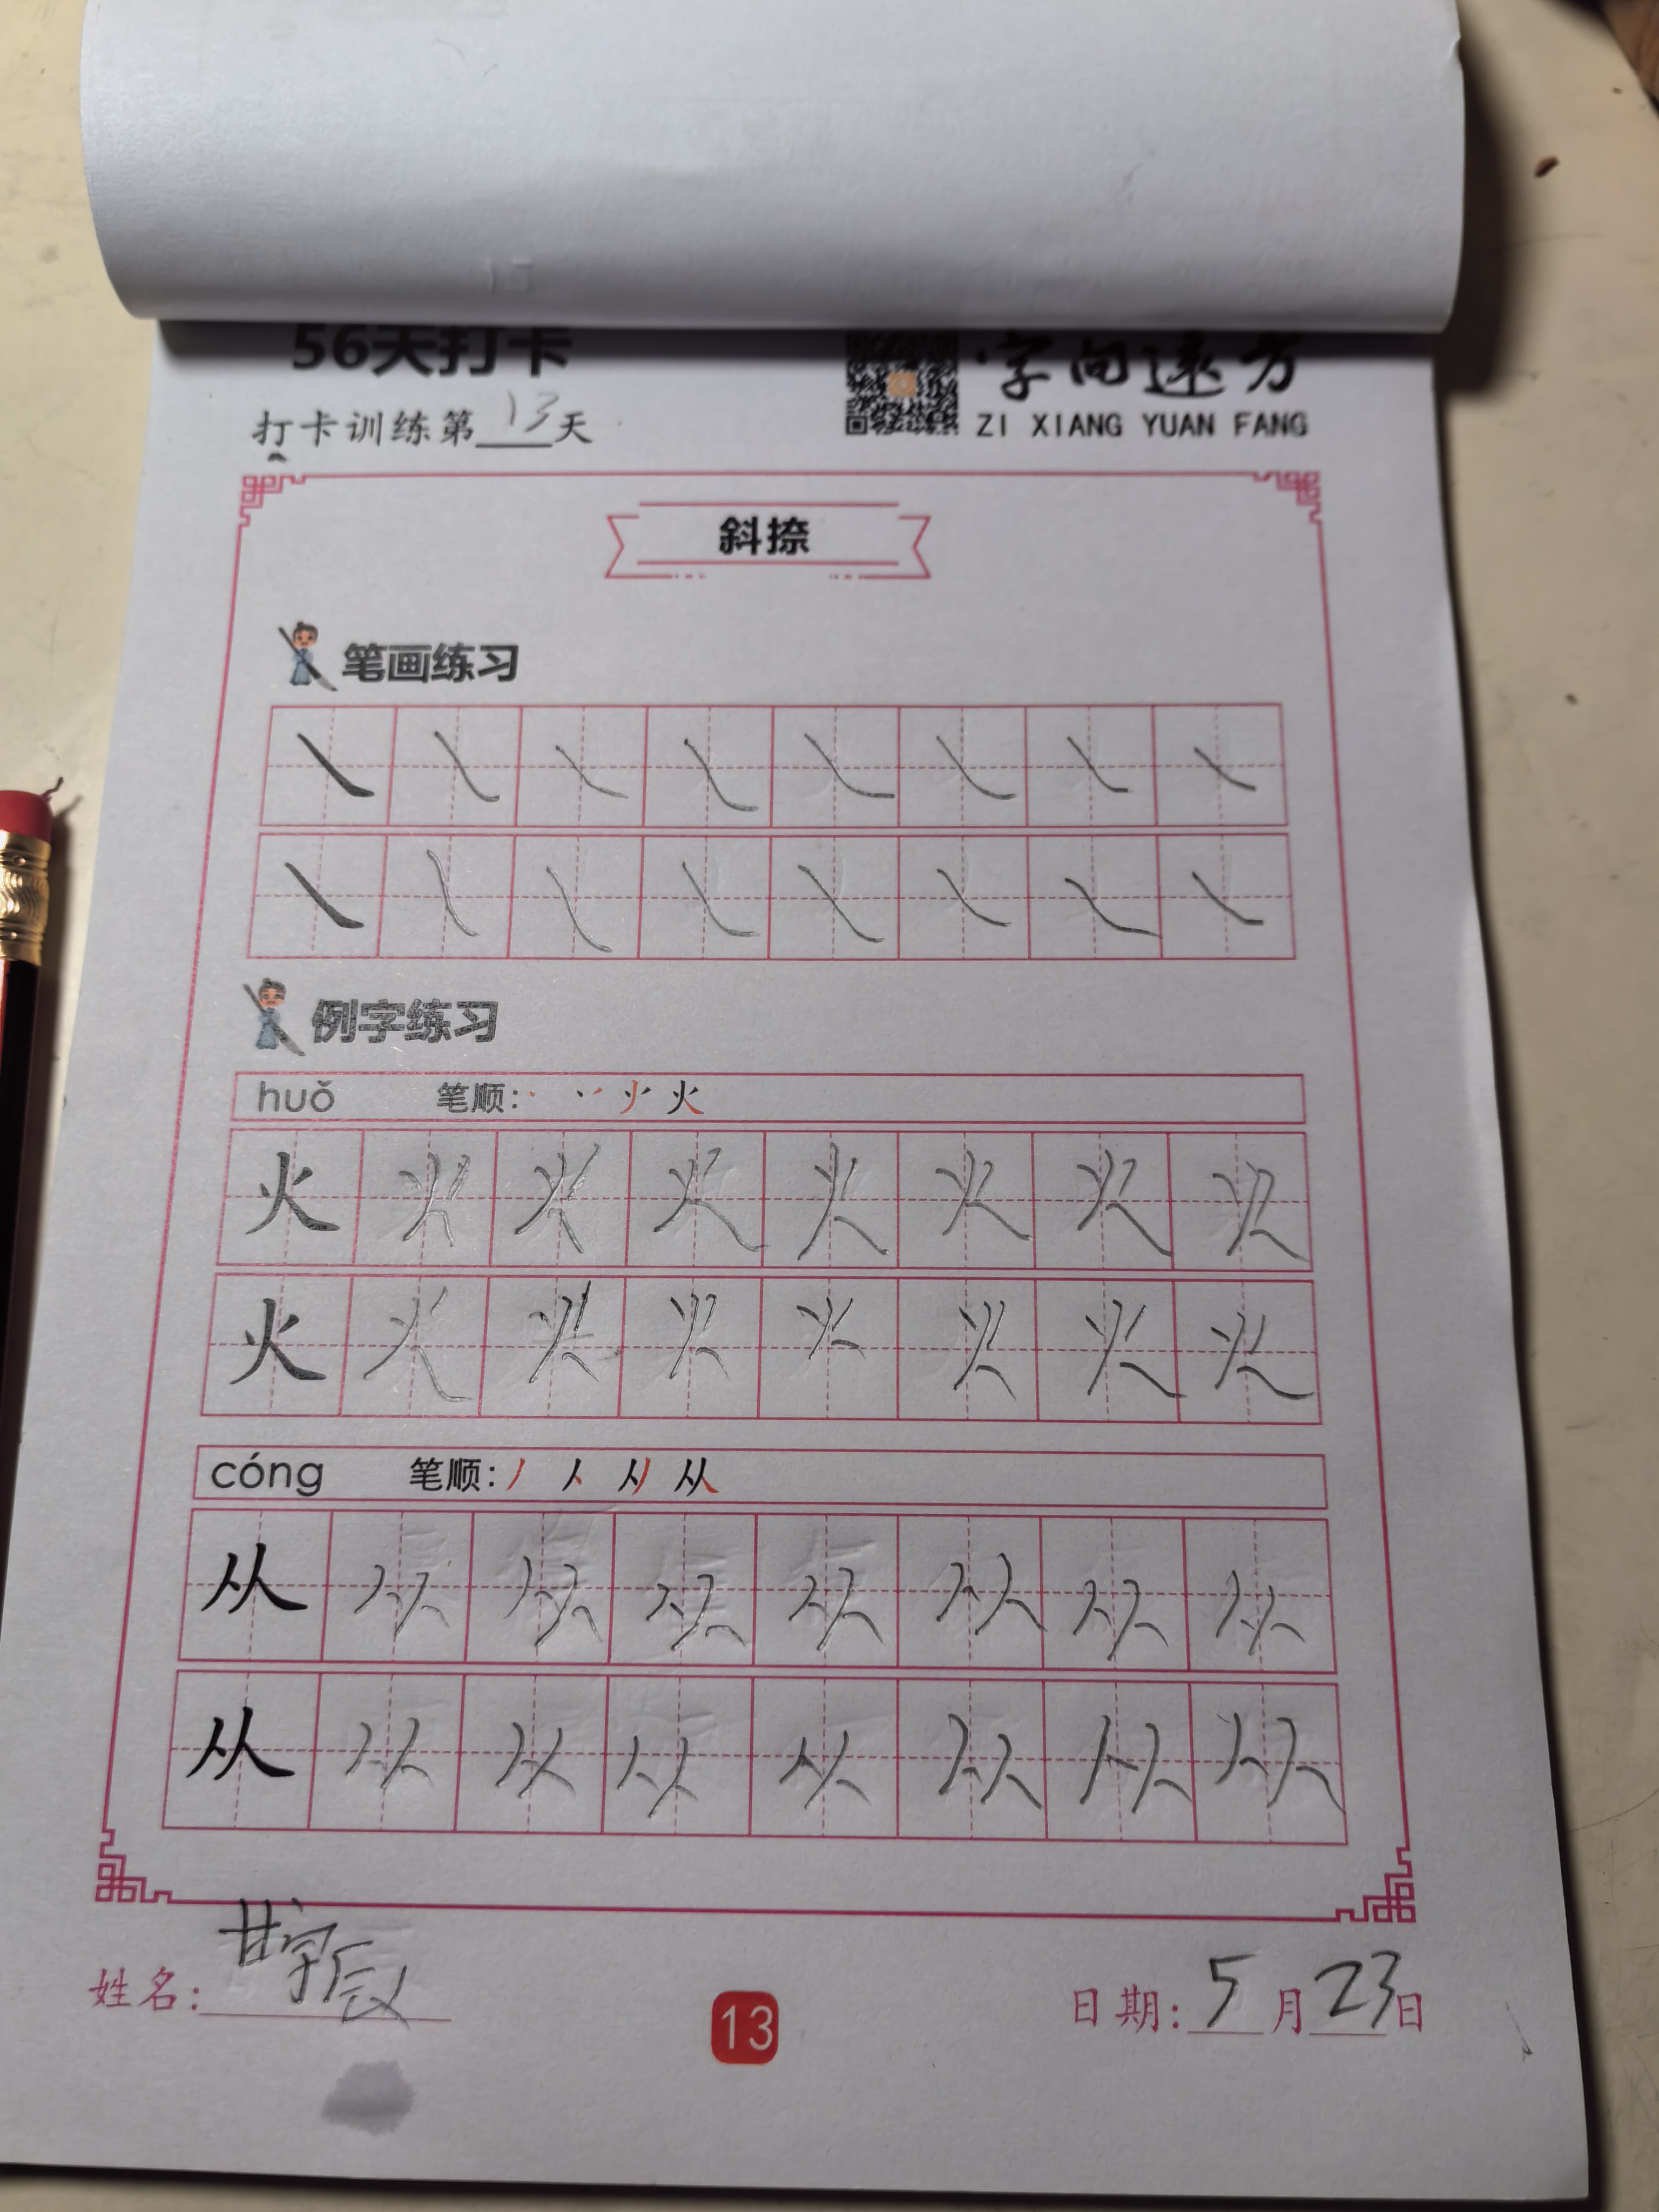 56天打卡
字向远方
打卡训练第13天
ZI XIANG YUAN FANG
斜捺
笔画练习
例字练习
huǒ 笔顺: 火
火 火 火 火 火 火 火 火
火 火 火 火 火 火 火 火
cóng 笔顺: 丿 人 从
从 从 从 从 从 从 从 从
从 从 从 从 从 从 从 从
姓名: 甘宇辰
13
日期: 5月23日